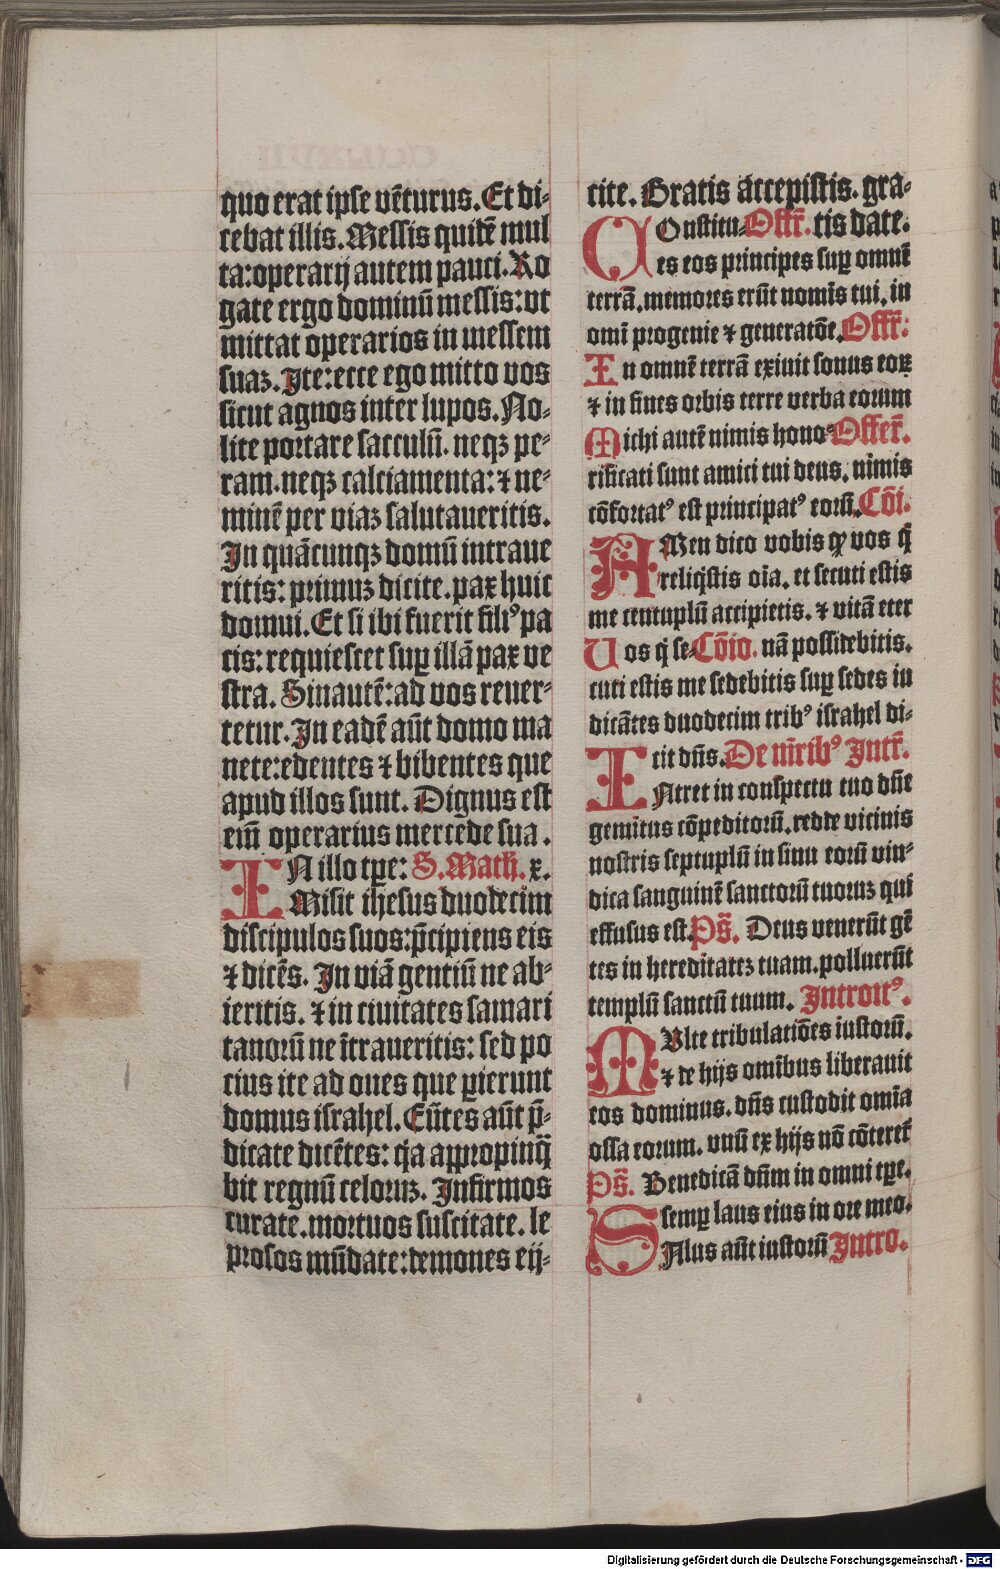 quo erat ipse vēturus. Et di-
cebat illis. Messis quidē mul
ta: operarij autem pauci. Ro
gate ergo dominū messis: vt
mittat operarios in messem
suaꝫ. Ite: ecce ego mitto vos
sicut agnos inter lupos. No-
lite portare sacculū. neqꝫ pe-
ram. neqꝫ calciamenta: ⁊ ne-
minē per viaꝫ salutaueritis.
In quācunqꝫ domū intraue
ritis: primuꝫ dicite. pax huic
domui. Et si ibi fuerit filiꝰ pa
cis: requiescet suꝑ illā pax ve
stra. Sinautē: ad vos reuer-
tetur. In eadē aūt domo ma
nete: edentes ⁊ bibentes que
apud illos sunt. Dignus est
eiṁ operarius mercede sua.
IN illo tꝑe: S. Math. x.
Misit ihesus duodecim
discipulos suos: p̄cipiens eis
⁊ dicēs. In viā gentiū ne ab-
ieritis. ⁊ in ciuitates samari
tanorū ne ītraueritis: sed po
cius ite ad oues que ꝑierunt
domus israhel. Eūtes aūt p̄-
dicate dicētes: qa appropinq̄
bit regnū celoruꝫ. Infirmos
curate. mortuos suscitate. le
prosos mūdate: demones eij-
cite. Gratis accepistis. gra-
COnstitu- Offr̄. tis date.
es eos principes suꝑ omnē
terrā. memores erūt nomīs tui. in
omī progenie ⁊ generatōe. Offr̄:
In omnē terrā exiuit sonus eoꝝ
⁊ in fines orbis terre verba eorum
Michi autē nimis hono- Offer̄.
rificati sunt amici tui deus. nimis
cōfortatꝰ est principatꝰ eorū. Cōi.
AMen dico vobis ꝙ vos q̇
reliq̇stis oīa. et secuti estis
me centuplū accipietis. ⁊ vitā eter
Uos q̇ se- Cōio. nā possidebitis.
cuti estis me sedebitis suꝑ sedes in
dicātes duodecim tribꝰ israhel di-
cit dn̄s. De m̄ribꝰ Intr̄.
INtret in conspectu tuo dn̄e
gemitus cōpeditorū. redde vicinis
nostris septuplū in sinu eorū vin-
dica sanguinē sanctorū tuoruꝫ qui
effusus est. Ps̄. Deus venerūt gē
tes in hereditateꝫ tuam. polluerūt
templū sanctū tuum. Introitꝰ.
MUlte tribulatiōes iustorū.
⁊ de hijs omībus liberauit
eos dominus. dn̄s custodit omīa
ossa eorum. vnū ex hijs nō cōteret̄
Ps̄. Benedicā dn̄m in omni tꝑe.
semꝑ laus eius in ore meo.
SAlus aūt iustorū Intro.
Digitalisierung gefördert durch die Deutsche Forschungsgemeinschaft - DFG